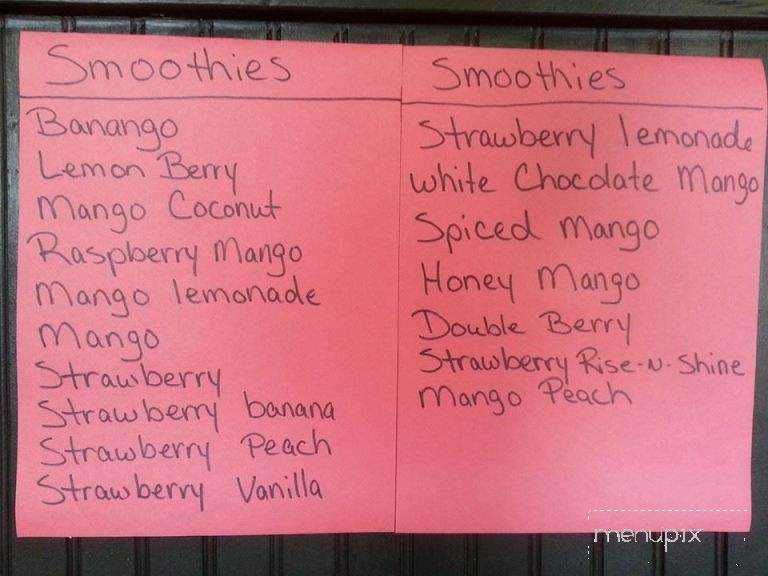 Smoothies
Banango
Lemon Berry
Mango Coconut
Raspberry Mango
Mango lemonade
Mango
Strawberry
Strawberry banana
Strawberry Peach
Strawberry Vanilla
Smoothies
Strawberry lemonade
White Chocolate Mango
Spiced Mango
Honey Mango
Double Berry
Strawberry Rise-N-Shine
Mango Peach
menupix